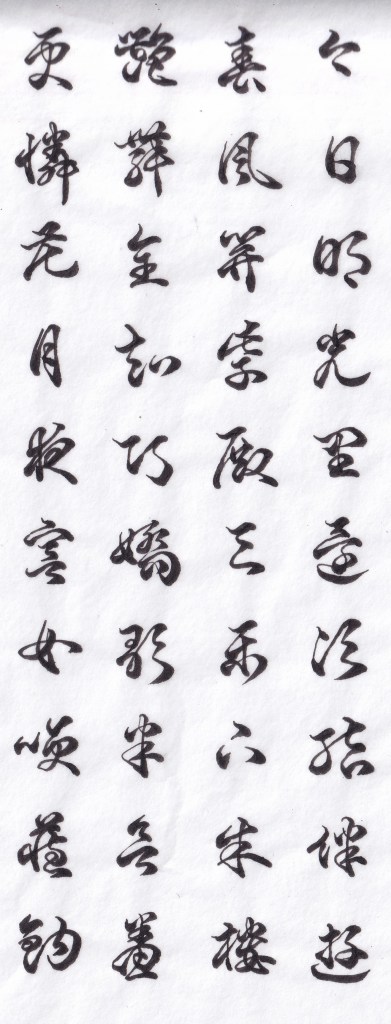 今日明光里還須結伴遊
春風開紫殿天樂下朱樓
艷舞全知巧嬌歌半欲羞
更憐花月夜宮女咲藏鉤